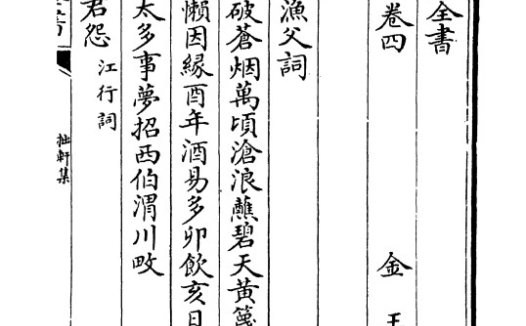 全書
卷四 金 王
漁父詞
破蒼烟萬頃滄浪蘸碧天黃篾
懶因緣酉年酒易多卯飲亥日
太多事夢招西伯渭川畋
君怨 江行詞
拙軒集